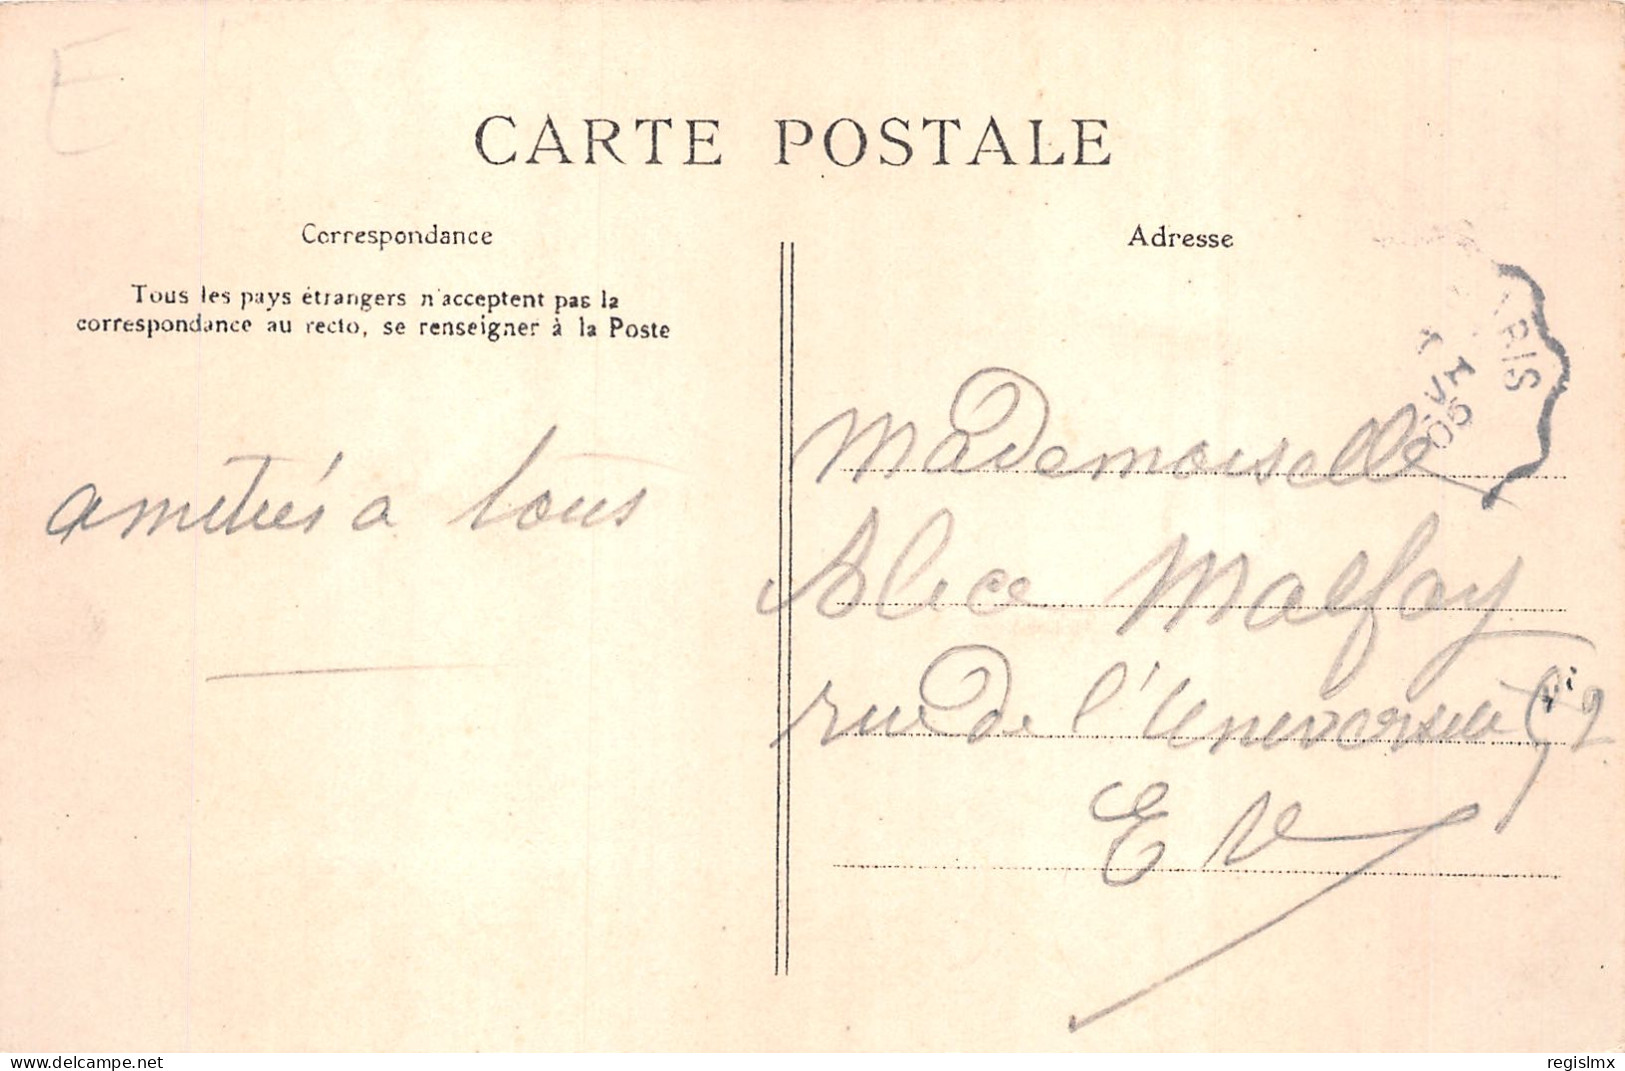 E
CARTE POSTALE
Correspondance
Tous les pays étrangers n'acceptent pas la
correspondance au recto, se renseigner à la Poste
amitiés a tous
Adresse
ARIS
05
Mademoiselle
Alice Malfay
rue de l'Université 92
E V
www.delcampe.net
regislmx